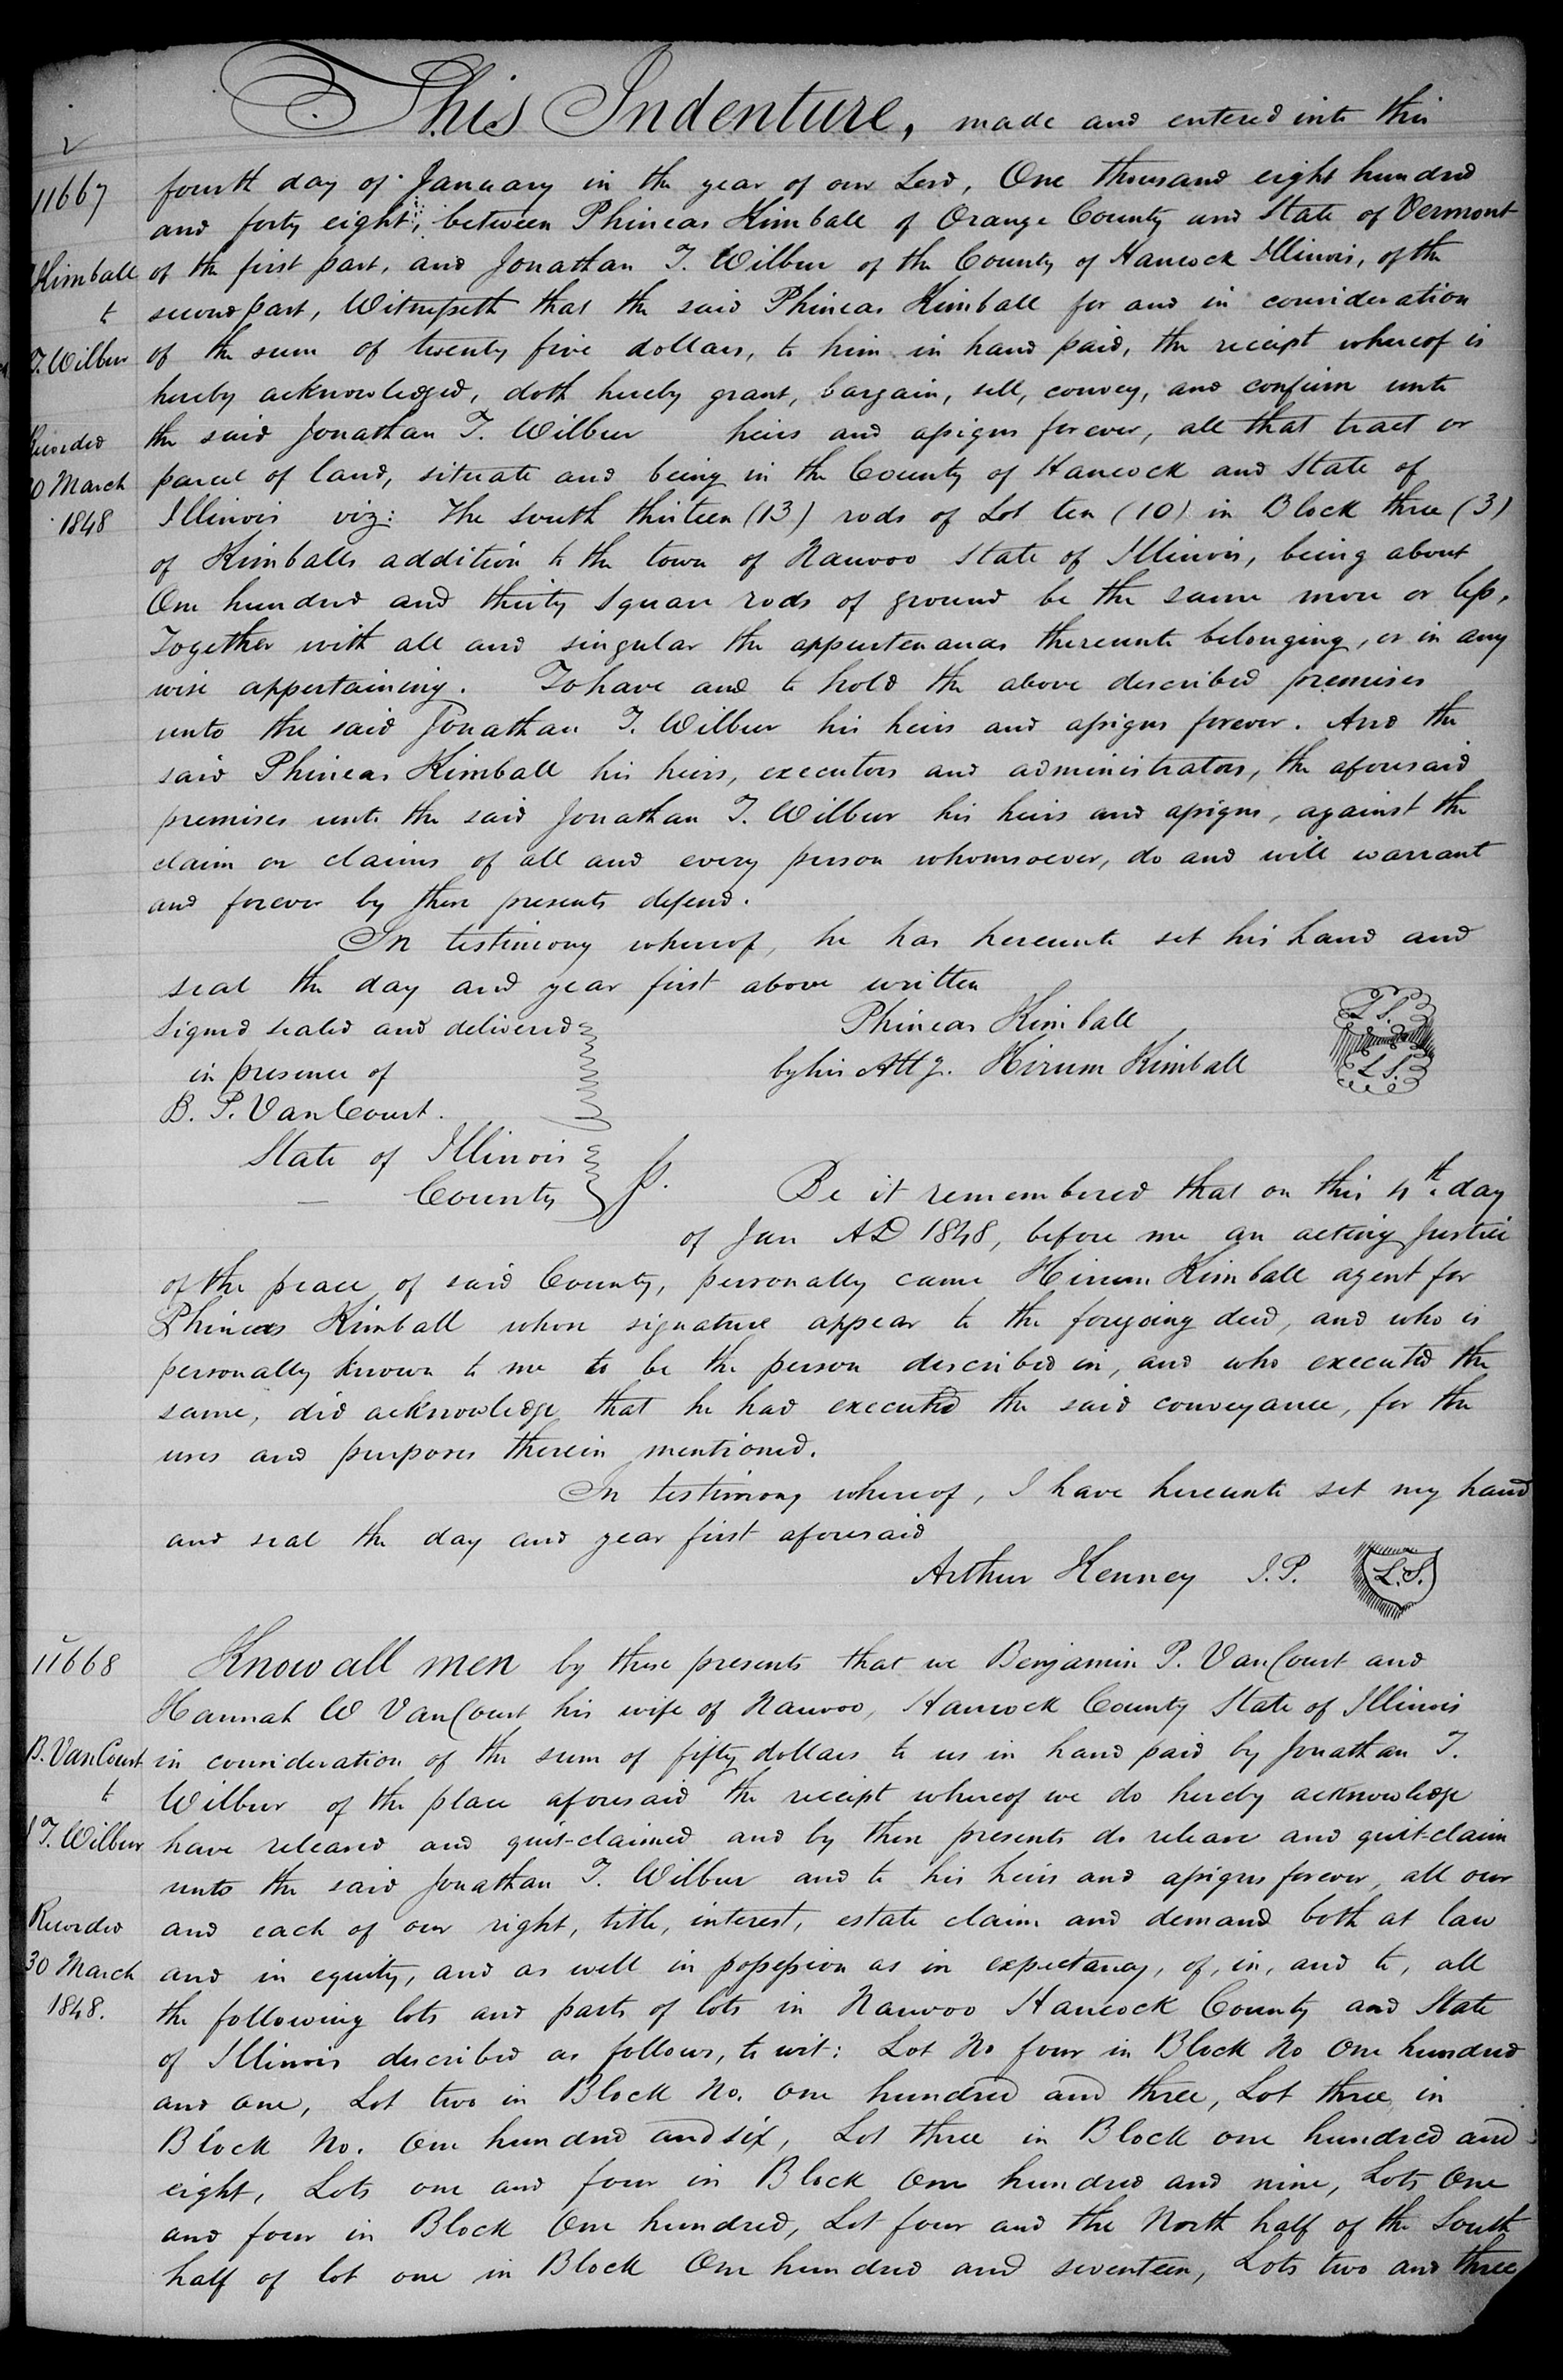 This Indenture, made and entered into this
11667
fourth day of January in the year of our Lord, One thousand eight hundred
and forty eight, between Phineas Kimball of Orange County and State of Vermont
Kimball
of the first part, and Jonathan T. Wilbur of the County of Hancock Illinois, of the
to
second part, Witnesseth that the said Phineas Kimball for and in consideration
T. Wilbur
of the sum of twenty five dollars, to him in hand paid, the receipt whereof is
hereby acknowledged, doth hereby grant, bargain, sell, convey, and confirm unto
Recorded
the said Jonathan T. Wilbur heirs and assigns forever, all that tract or
0 March
parcel of land, situate and being in the County of Hancock and State of
1848
Illinois viz: The South thirteen (13) rods of Lot ten (10) in Block three (3)
of Kimballs addition to the town of Nauvoo State of Illinois, being about
One hundred and thirty square rods of ground be the same more or less,
Together with all and singular the appurtenances thereunto belonging, or in any
wise appertaining. To have and to hold the above described premises
unto the said Jonathan T. Wilbur his heirs and assigns forever. And the
said Phineas Kimball his heirs, executors and administrators, the aforesaid
premises unto the said Jonathan T. Wilbur his heirs and assigns, against the
claim or claims of all and every person whomsoever, do and will warrant
and forever by these presents defend.
In testimony whereof, he has hereunto set his hand and
seal the day and year first above written
Signed sealed and delivered
in presence of
B. P. VanCourt.
Phineas Kimball L.S.
by his Atty. Hirum Kimball L.S.
State of Illinois
County ss.
Be it remembered that on this 4th day
of Jan AD 1848, before me an acting Justice
of the peace of said County, personally came Hirum Kimball agent for
Phineas Kimball whose signature appear to the foregoing deed, and who is
personally known to me to be the person described in, and who executed the
same, did acknowledge that he had executed the said conveyance, for the
uses and purposes therein mentioned.
In testimony whereof, I have hereunto set my hand
and seal the day and year first aforesaid
Arthur Kenney J.P. L.S.
11668
Know all men by these presents that we Benjamin P. VanCourt and
Hannah W VanCourt his wife of Nauvoo, Hancock County State of Illinois
B. VanCourt
in consideration of the sum of fifty dollars to us in hand paid by Jonathan T.
to
Wilbur of the place aforesaid the receipt whereof we do hereby acknowledge
T. Wilbur
have released and quit-claimed and by these presents do release and quit-claim
unto the said Jonathan T. Wilbur and to his heirs and assigns forever, all our
Recorded
and each of our right, title, interest, estate claim and demand both at law
30 March
and in equity, and as well in possession as in expectancy, of, in, and to, all
1848.
the following lots and parts of lots in Nauvoo Hancock County and State
of Illinois described as follows, to wit: Lot No four in Block No One hundred
and one, Lot two in Block No. one hundred and three, Lot three in
Block No. One hundred and six, Lot three in Block one hundred and
eight, Lots one and four in Block One hundred and nine, Lots One
and four in Block One hundred, Lot four and the North half of the South
half of lot one in Block One hundred and seventeen, Lots two and three